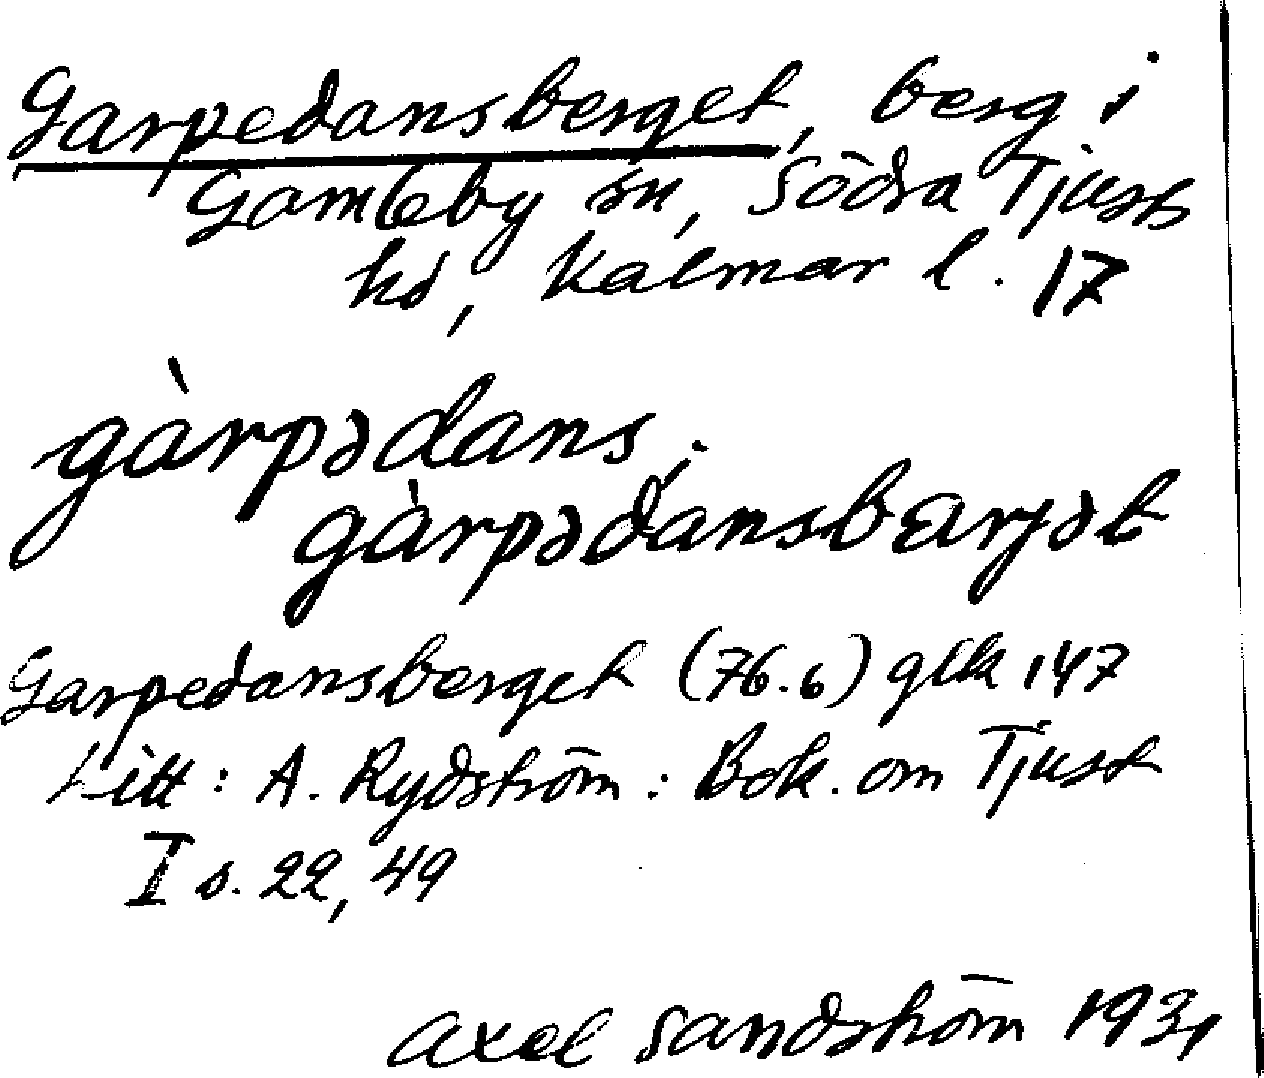 Garpedansberget, berg i
Gamleby sn, Södra Tjust
hd, Kalmar l. 17
gàrpədans;
gàrpədansbærjət
Garpedansberget (76.6) glk 147
Litt: A. Rydström: Bok. om Tjust
I s. 22, 49
Axel Sandström 1931